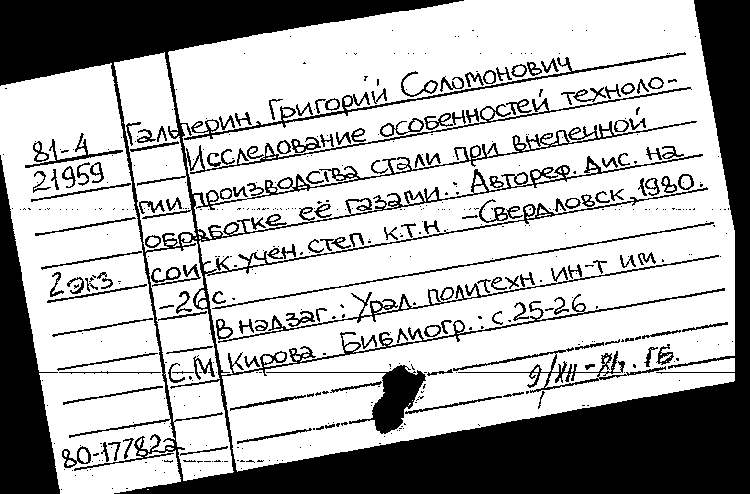 Гальперин, Григорий Соломонович
81-4
21959
Исследование особенностей техноло-
гии производства стали при внепечной
обработке её газами.: Автореф. дис. на
соиск. учен. степ. к.т.н. -Свердловск, 1980.
2 экз.
-26с.
В надзаг.: Урал. политехн. ин-т им.
С.М. Кирова. Библиогр.: с.25-26.
9/XII-81г. ГБ.
80-17782а